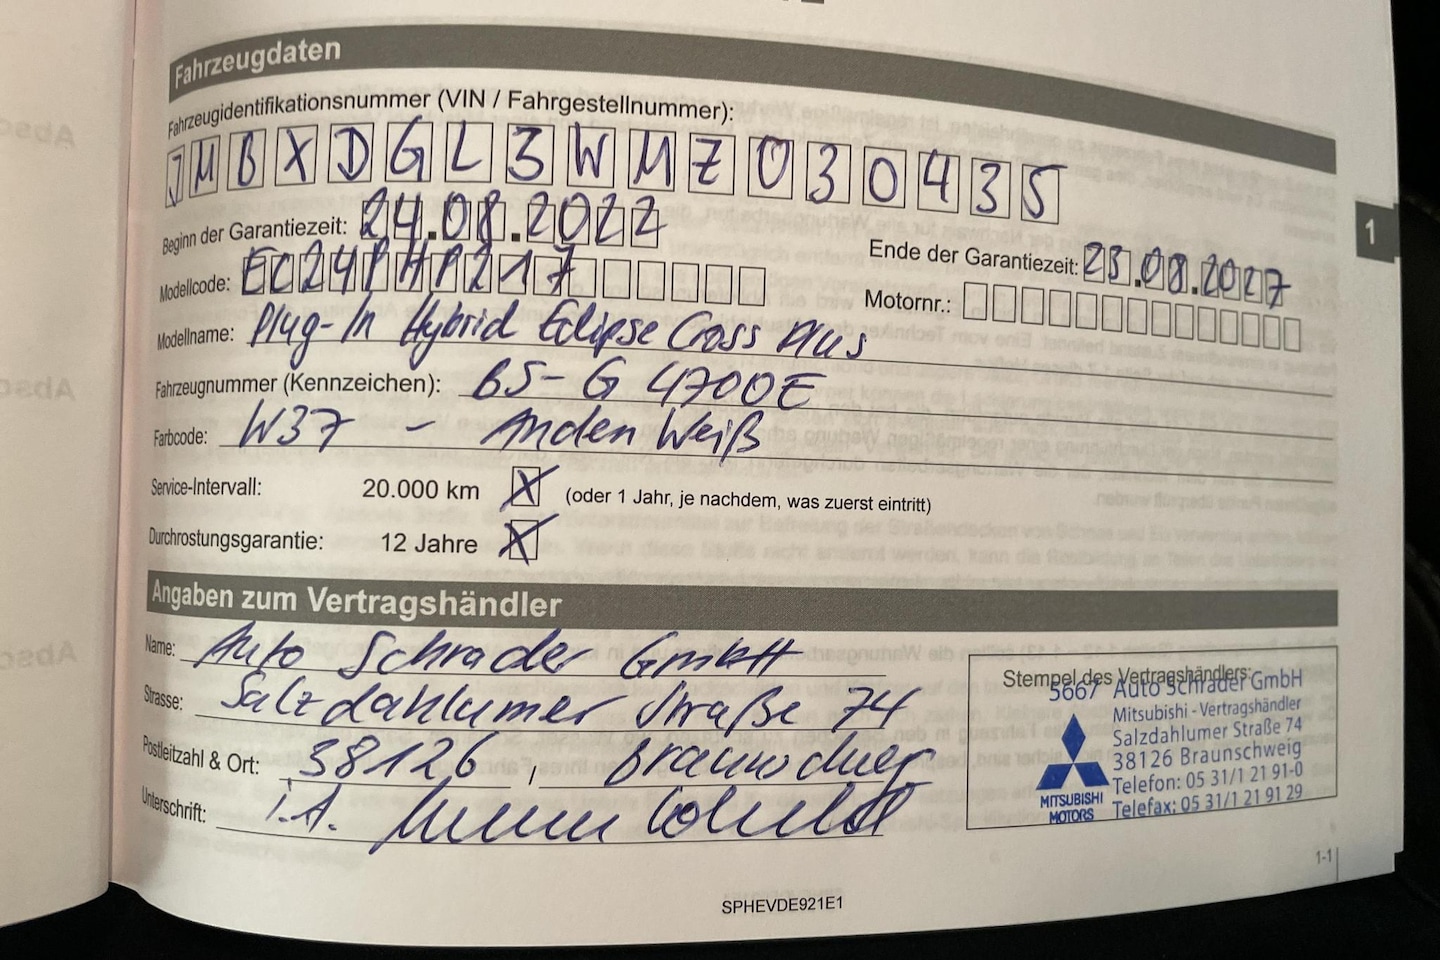 Fahrzeugdaten
Fahrzeugidentifikationsnummer (VIN / Fahrgestellnummer):
JMBXDGL3WMZ030435
Beginn der Garantiezeit: 24.08.2022
Ende der Garantiezeit: 23.08.2027
Modellcode: EC24PHP217
Motornr.:
Modellname: Plug-In Hybrid Eclipse Cross Plus
Fahrzeugnummer (Kennzeichen): BS-G 4700E
Farbcode: W37 - Anden Weiß
Service-Intervall: 20.000 km X (oder 1 Jahr, je nachdem, was zuerst eintritt)
Durchrostungsgarantie: 12 Jahre X
Angaben zum Vertragshändler
Name: Auto Schrader GmbH
Strasse: Salzdahlumer Straße 74
Postleitzahl & Ort: 38126, Braunschweig
Unterschrift: i.A.
Stempel des Vertragshändlers:
5667 Auto Schrader GmbH
Mitsubishi - Vertragshändler
Salzdahlumer Straße 74
38126 Braunschweig
Telefon: 05 31/1 21 91-0
Telefax: 05 31/1 21 91 29
MITSUBISHI
MOTORS
1
1-1
SPHEVDE921E1